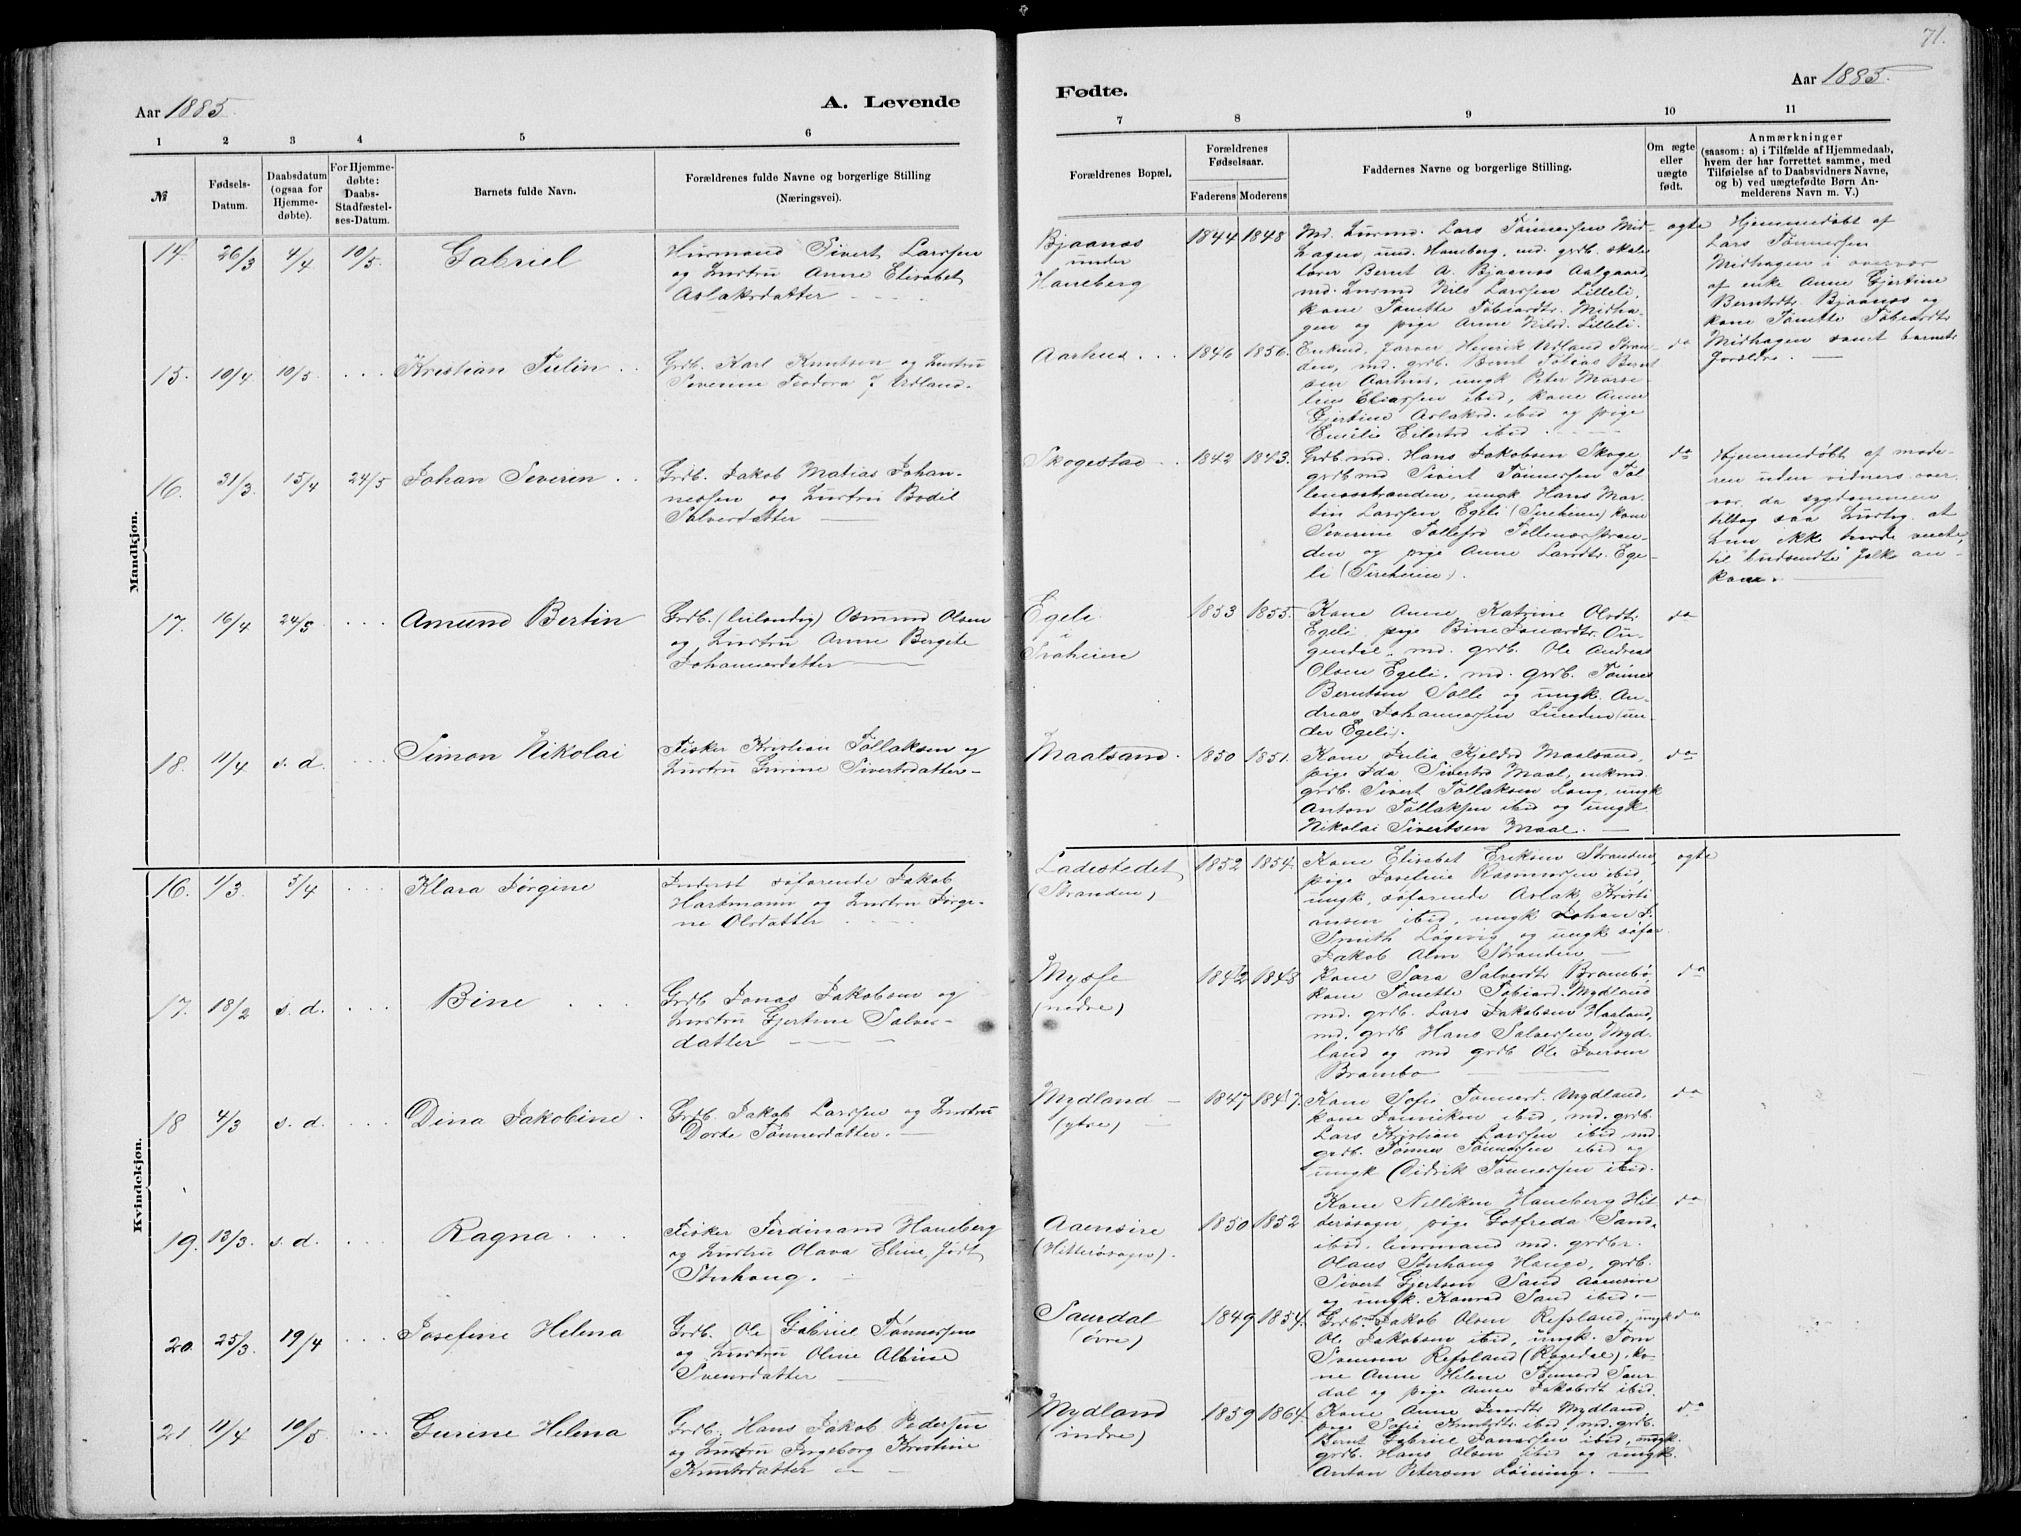 71.
Aar 1885.
A. Levende
Fødte.
Aar 1885.
1 2 3 4 5 6
7 8 9 10 11
№
Fødsels-
Datum.
Daabsdatum
(ogsaa for
Hjemme-
døbte).
For Hjemme-
døbte:
Daabs-
Stadfæstel-
ses-Datum.
Barnets fulde Navn.
Forældrenes fulde Navne og borgerlige Stilling
(Næringsvei).
Forældrenes Bopæl.
Forældrenes
Fødselsaar.
Faderens Moderens
Faddernes Navne og borgerlige Stilling.
Om ægte
eller
uægte
født.
Anmærkninger
(saasom: a) i Tilfælde af Hjemmedaab,
hvem der har forrettet samme, med
Tilføielse af to Daabsvidners Navne,
og b) ved uægtefødte Børn An-
melderens Navn m. V.)
Mandkjøn.
14. 26/3 4/4 10/5. Gabriel
Husmand Sivert Larssen
og hustru Anne Elisabet
Aslaksdatter
Bjaanes
under
Haneberg
1844 1848
Md. husmd. Lars Tønnessen Mid-
hagen, und. Haneberg, md. grdb. skole
lærer Bernt A. Bjaanes Aalgaard,
md. husmd Nils Larssen Lilleli,
kone Tonette Tobiasdt. Midha-
gen og pige Anne Nilsd. Lilleli.
ægte
Hjemmedøbt af
Lars Tønnessen
Midhagen i overvær
af enke Anne Gjertine
Berntsdtr. Bjaanes og
kone Tonette Tobiasdtr
Midhagen samt barnets
forældre.
15. 10/4 10/5 Kristian Tulin
Grdb. Karl Knutsen og hustru
Severine Teodora f. Urland.
Aarhus
1846 1856.
Enkmd. farver Henrik Urland Stran-
den, md. grdb. Bernt Tobias Bernt
sen Aarhus, ungk Peter Marse
lius Eliassen ibid, kone Anne
Gjertine Aslaksd. ibid og pige
Emilie Eilertsd ibid.
do
16. 31/3. 15/4 24/5 Johan Severin
Grdb. Jakob Matias Johan-
nessen og hustru Bodil
Salvesdatter
Skogestad
1842 1843.
Grdb. md. Hans Jakobsen Skoge,
grdb md Sivert Tønnessen Tol
lenesstranden, ungk Hans Mar-
tin Larssen Egeli (Sireheien) kone
Severine Tollefsd Tollenesstran-
den og pige Anne Larsdtr. Ege-
li (Sireheien).
do
Hjemmedøbt af mode-
ren uden vidners over-
vær, da sygdommen
tiltog saa hurtig at
hun ikke turde vente
til "budsendte" folk an-
kom.
17. 16/4 24/5 Amund Bertin
Grdb. (leilending) Asmund Olsen
og hustru Anne Bergite
Johannesdatter
Egeli
i
Svaheien
1853 1855.
Kone Anne Katrine Olsdtr
Egeli, pige Bine Jonasdtr. Ou-
gendal, md. grdb. Ole Andreas
Olsen Egeli, md. grdb. Tønnes
Berntsen Solli og ungk. An-
dreas Johannessen Lunden (un-
der Egeli).
do
18. 11/4 s. d. Simon Nikolai
Fisker Kristian Tollaksen og
hustru Gurine Sivertsdatter
Maalsand.
1850 1851.
Kone Julia Kjeldsd Maalsand,
pige Ida Sivertsd Maal, enkmd.
grdb. Sivert Tollaksen Long, ungk
Anton Tollaksen ibid og ungk
Nikolai Sivertsen Maal.
do
Kvindekjøn.
16. 1/3. 5/4 Klara Jørgine
Inderst søfarende Jakob
Hartmann og hustru Jørgi-
ne Olsdatter
Ladestedet
(Stranden)
1852 1854.
Kone Elisabet Eriksen Stranden,
pige Josefine Rasmussen ibid,
ungk. søfarende Aslak Kristi
ansen ibid, ungk Johan J.
Smith Løgevig og ungk søfar.
Jakob Alm Stranden
ægte
17. 18/2 s. d. Bine
Grdb Jonas Jakobsen og
hustru Gjertine Salves-
datter
Mysse
(nedre)
1842 1848
Kone Sara Salvesdtr Brambø,
kone Tonette Tobiasd. Mydland
md. grdb. Lars Jakobsen Haaland,
md. grdb Hans Salvessen Myd-
land og md grdb Ole Iversen
Brambø
do
18 4/3 s. d. Dina Jakobine
Grdb. Jakob Larssen og hustru
Dorte Tønnesdatter.
Mydland
(ytre)
1847 1847.
Kone Sofie Tønnesd. Mydland,
kone Jonniken ibid, md. grdb.
Lars Kristian Larssen ibid md.
grdb. Tønnes Tønnessen ibid og
ungk Didrik Tønnessen ibid.
do
19. 13/3. s. d. Ragna
Fisker Ferdinand Haneberg
og hustru Olava Eline, født
Stuhaug.
Aaensire
(Hitterøsogn).
1850 1852
Kone Nelliken Haneberg Hit
terøsogn, pige Gotfreda Sand,
ibid. lensmand md. grdbr.
Olaus Stuhaug Hauge, grdb.
Sivert Gjertsen Sand Aaensire
og ungk. Konrad Sand ibid.
do
20. 25/3. 19/4 Josefine Helena
Grdb. Ole Gabriel Tønnessen
og hustru Oline Albine
Svensdatter
Saurdal
(øvre)
1849 1854.
Grdb. Jakob Olsen Refsland, ungk
Ole Jakobsen ibid, ungk. Tørn
Svensen Refsland (Rægedal), ko-
ne Anne Helene Tønnesd Saur
dal og pige Anne Jakobsdt ibid.
do
21. 11/4 10/5 Gurine Helena
Grdb. Hans Jakob Pedersen
og hustru Ingeborg Kristine
Knutsdatter
Mydland
(indre)
1859 1864.
Kone Anne Jensdtr Mydland,
pige Sofie Knutsdtr ibid, md. grdb.
Bernt Gabriel Jonassen ibid, ungk.
grdb. Hans Olsen ibid og ungk.
Anton Petersen Løining.
do